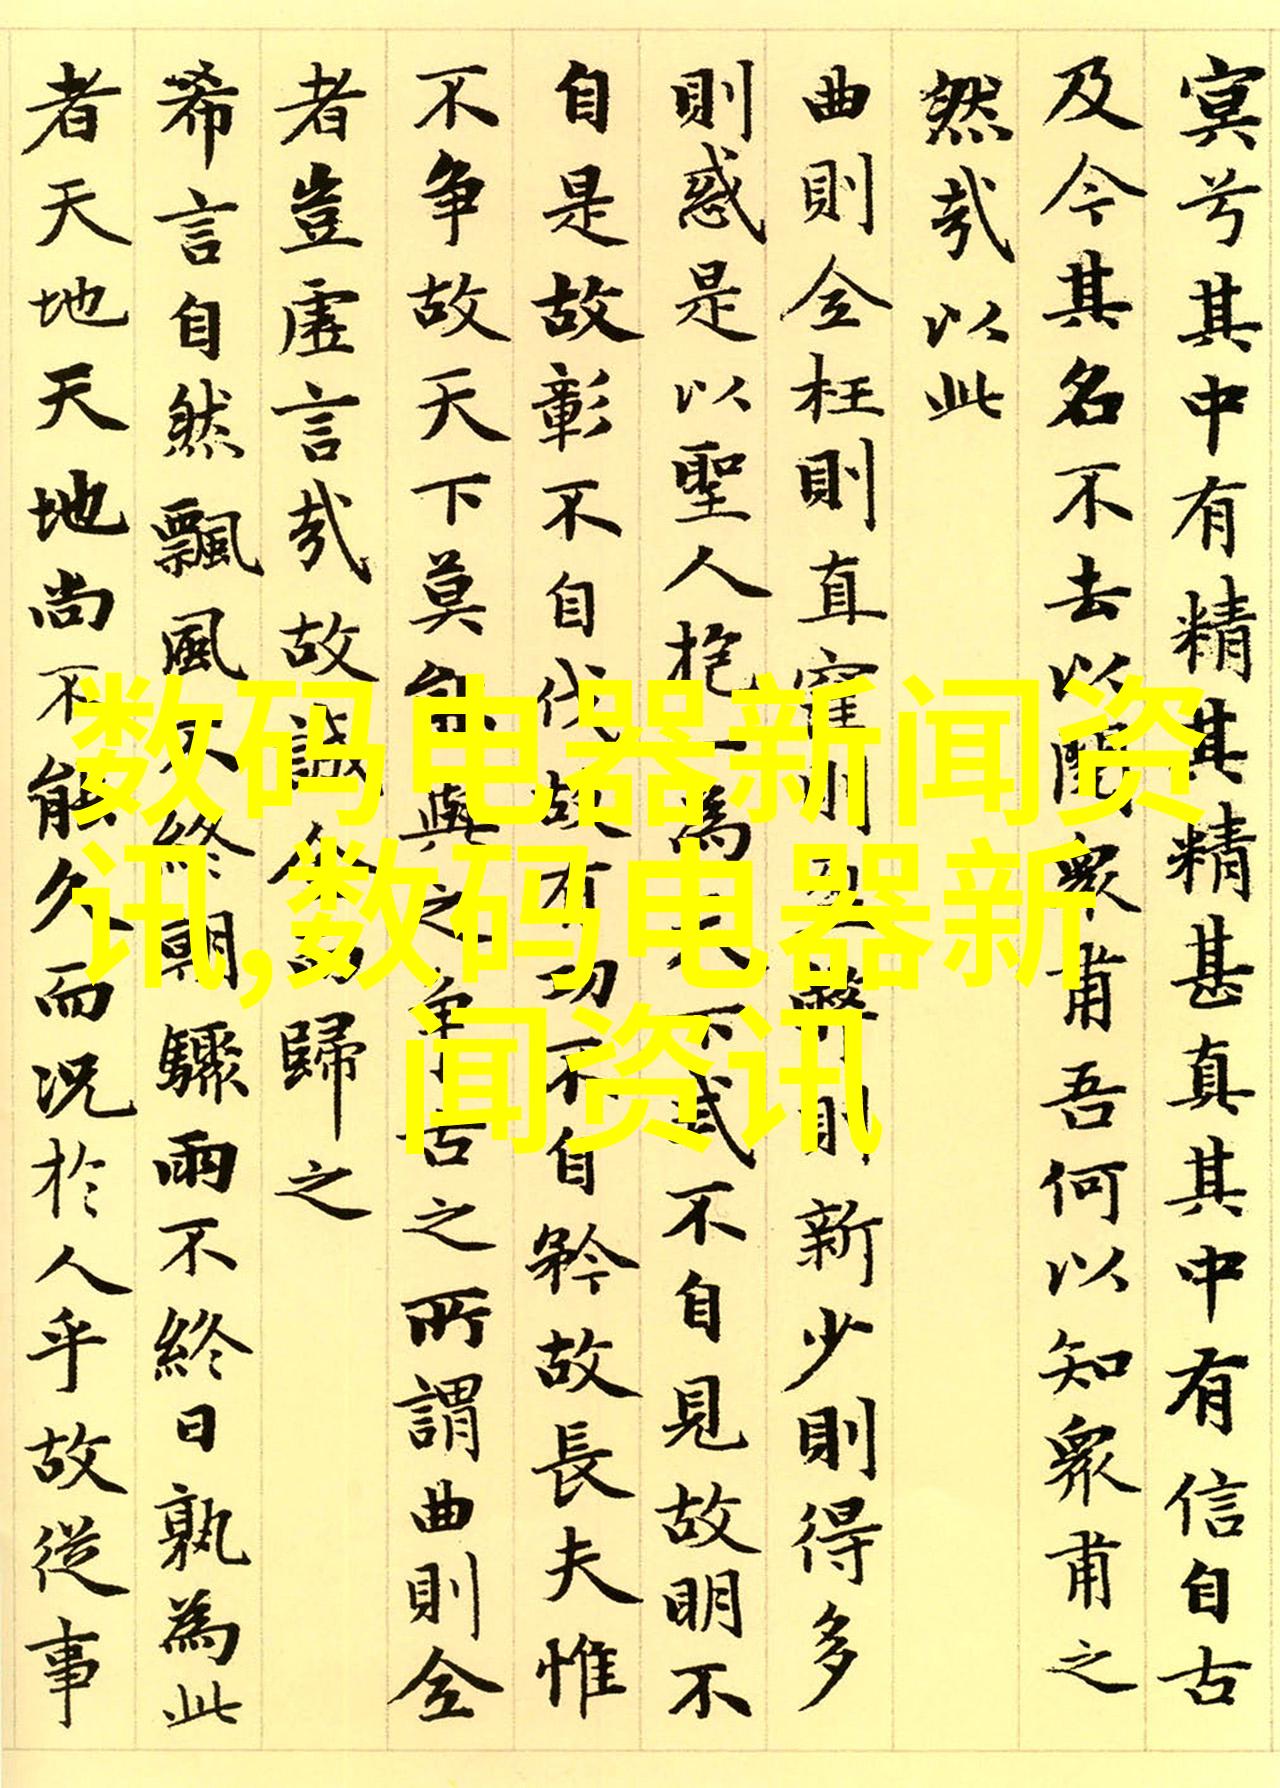 冥兮其中有精其精甚真其中有信自古
及今其名不去以閱衆甫吾何以知衆甫之
然哉以此
曲則全枉則直窪則盈弊則新少則得多
則惑是以聖人抱一為天下式不自見故明不
自是故彰不自伐故有功不自矜故長夫惟
不争故天下莫能與之争古之所謂曲則全
者豈虛言哉故誠全而歸之
希言自然飄風不終朝驟雨不終日孰為此
者天地天地尚不能久而況於人乎故從事
数码电器新闻资
讯,数码电器新
闻资讯